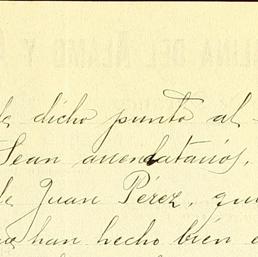 de dicho punto al
Sean arrendatarios,
de Juan Pérez, que
han hecho bien